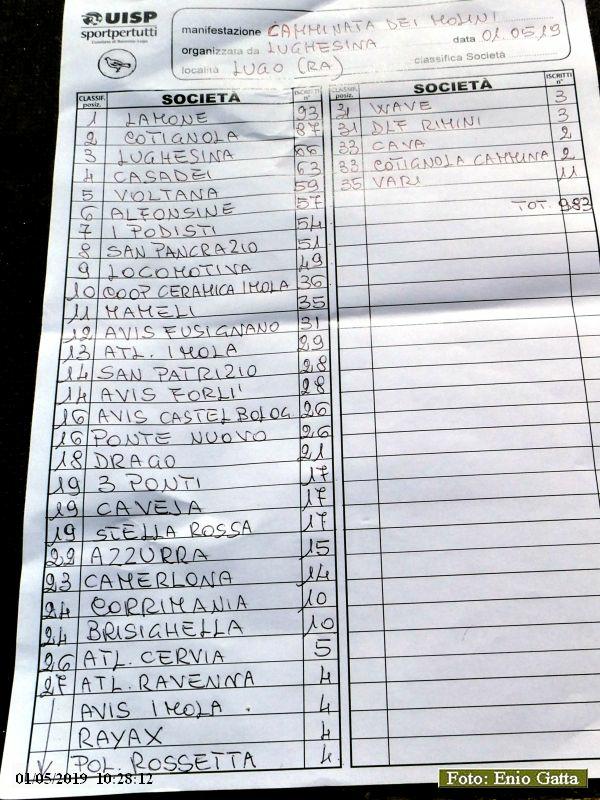 UISP
sportpertutti
manifestazione CAMMINATA DEI MOLINI
organizzata da LUGHESINA data 01.05.19
località LUGO (RA) classifica Società
CLASSIF. posiz. SOCIETÀ ISCRITTI n°
1 LAMONE 93
2 COTIGNOLA 87
3 LUGHESINA 66
4 CASADEI 63
5 VOLTANA 59
6 ALFONSINE 57
7 I PODISTI 54
8 SAN PANCRAZIO 51
9 LOCOMOTIVA 49
10 COOP CERAMICA IMOLA 36
11 MAMELI 35
12 AVIS FUSIGNANO 31
13 ATL. IMOLA 29
14 SAN PATRIZIO 28
14 AVIS FORLI' 28
16 AVIS CASTEL BOLOG. 26
16 PONTE NUOVO 26
18 DRAGO 21
19 3 PONTI 17
19 CAVEJA 17
19 STELLA ROSSA 17
22 AZZURRA 15
23 CAMERLONA 14
24 CORRIMANIA 10
24 BRISIGHELLA 10
26 ATL. CERVIA 5
27 ATL. RAVENNA 4
AVIS IMOLA 4
RAYAX 4
POL. ROSSETTA 4
CLASSIF. posiz. SOCIETÀ ISCRITTI n°
31 WAVE 3
31 DLF RIMINI 3
33 CAVA 2
33 COTIGNOLA CAMMINA 2
35 VARI 11
TOT. 983
01/05/2019 10:28:12
Foto: Enio Gatta